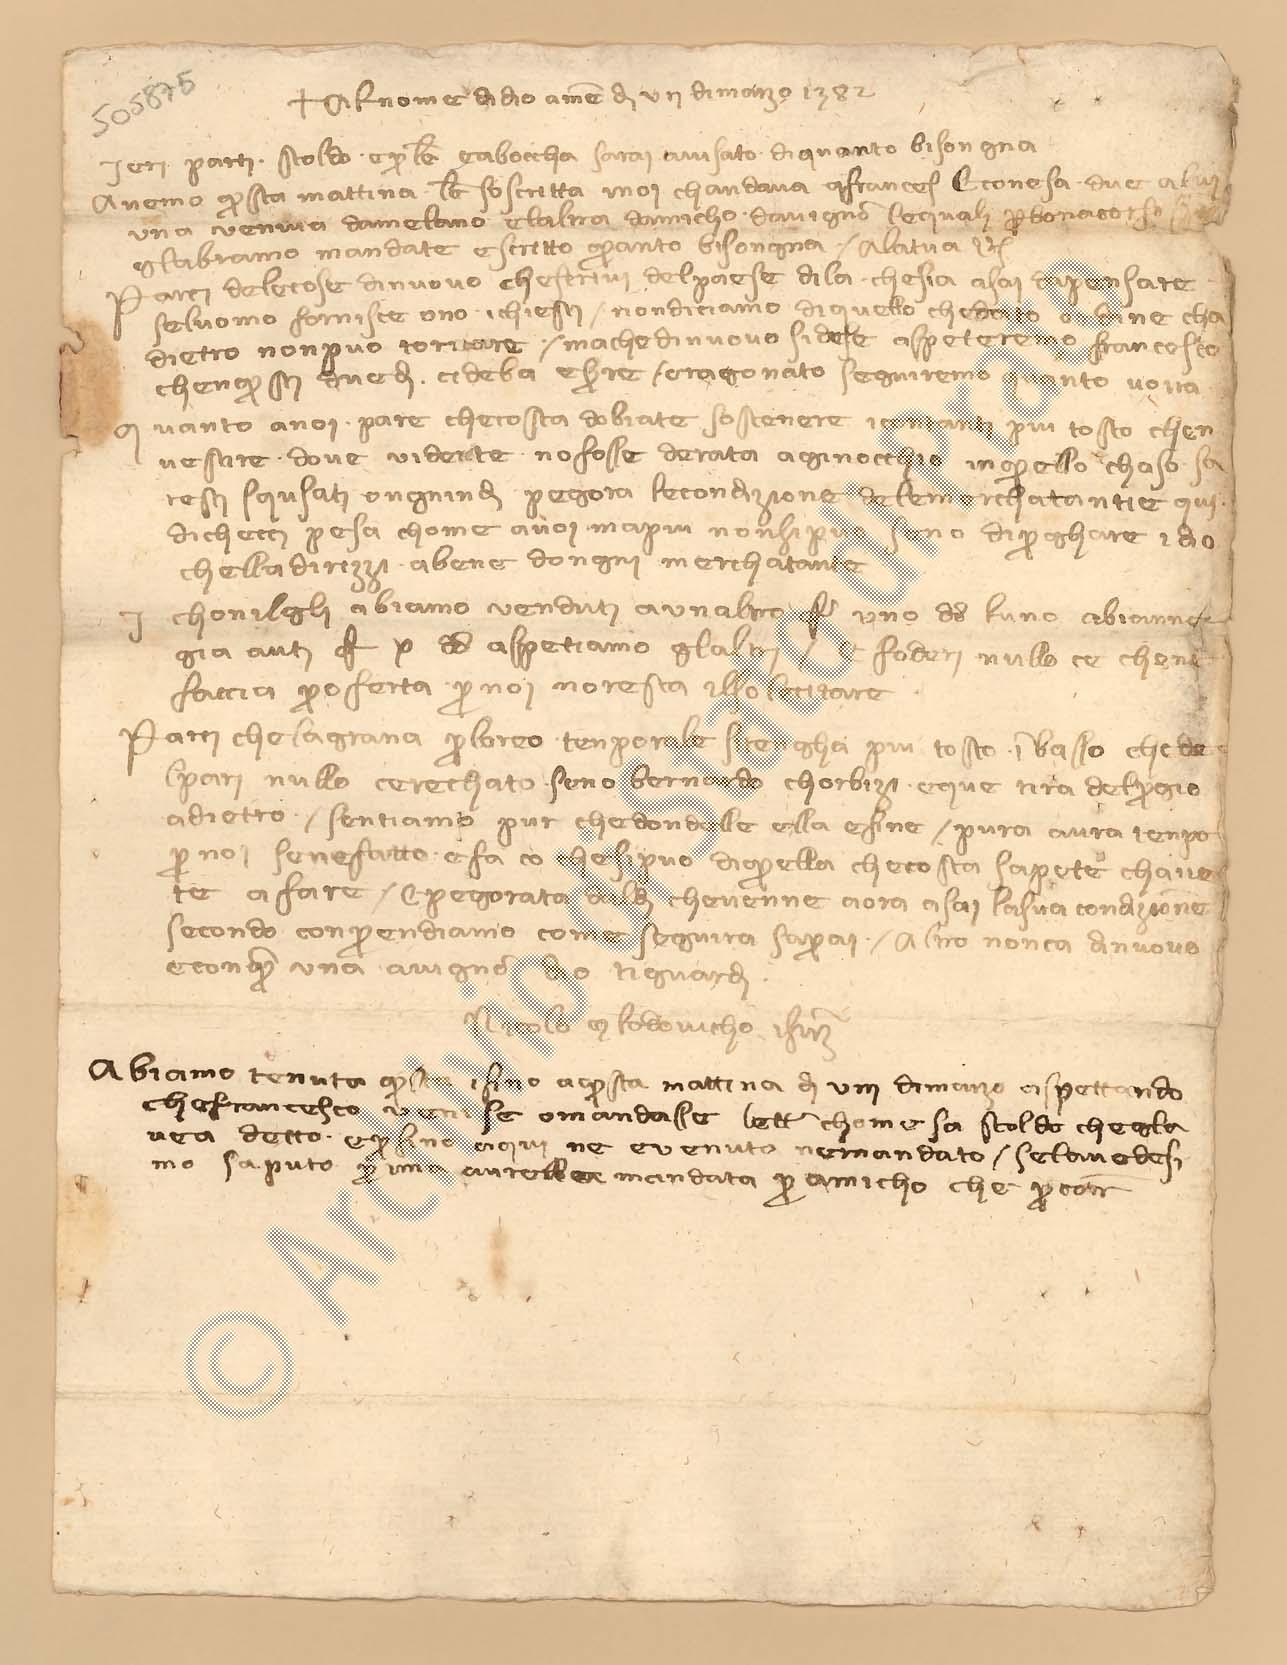 505875
+ Al nome di dio amē dì vii di marzo 1382
Ieri partì stoldo e per lē e a boccha sarai avisato di quanto bisongna
Avemo questa mattina lē soscritta in voi chandava a francescho e conesa due a lui
una venuta da melano e l altra d amicho d avignō le quali per bonacorso
gl abiamo mandate e scritto quanto bisongna / A la tua r
Parti de le cose di nuovo che scrivi del paese di la che sia asai da pensare
se l uomo fornisce ono i chiesti / non diciamo di quello che dato ordine cha
dietro non puo tornare / ma che di nuovo si dese aspeteremo francescho
che in questi due dì ci deba esere / e ragonato seguiremo quanto vorra
Quanto a noi pare che costà dobiate sostenere i contanti piu tosto che n
vestire dove vederte no fosse derata a ginocchio in quello chaso sa
resti schusati ongnindì pegora le condizione de le merchatantie qui
di che ci pesa chome a voi ma piu non si puo seno di preghare idio
che lla dirizzi a bene d ongni merchatante
I chonilgli abiamo venduti a un altro f uno d l uno abianne
gia auti f x d aspetiamo gl altri / E foderi nullo ce che ne
faccia proferta per noi no resta i llo lecitare
Parti che la grana per lo reo tenporale si tengha piu tosto ī basso che de
l pari nullo ce rechato seno bernardo chorbizi e que tira del pregio
adietro / sentiamo pur che dondolle ella e fine / pur a avra tenpo
per noi se n e fatto e fa co che si puo di quella che costà sapete ch avve
te a fare / E pegorata dal dì che venne a ora asai la sua condizione
secondo conprendiamo come seguira saprai / Altro non ca di nuovo
e con questa una a vignō dio ti guardi
Nicolò e lodovicho di firz
Abiamo tenuta questa i sino a questa mattina dì viii di marzo aspettando
che francescho venise o mandasse lett chome sa stoldo che gl a
vea detto e per sino a qui ne e venuto ne mandato / se l avedesi
mo saputo prima avrella mandata per amicho che partì